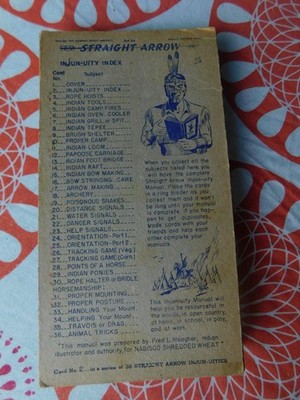 STRAIGHT ARROW
INJUN-UITY INDEX
Card No. Subject
1. COVER
2. INJUN-UITY INDEX
3. ROPE HOISTS
4. INDIAN TOOLS
5. INDIAN CAMP FIRES
6. INDIAN OVEN, COOLER
7. INDIAN GRILL or SPIT
8. INDIAN TEPEE
9. BRUSH SHELTER
10. PROPER CAMP
11. INDIAN LOOM
12. PAPOOSE CARRIAGE
13. INDIAN FOOT BRIDGE
14. INDIAN RAFT
15. INDIAN BOW MAKING
16. BOW STRINGING, CARE
17. ARROW MAKING
18. ARCHERY
19. POISONOUS SNAKES
20. DISTANCE SIGNALS
21. WATER SIGNALS
22. DANGER SIGNALS
23. HELP SIGNALS
24. ORIENTATION-Part 1
25. ORIENTATION-Part 2
26. TRACKING GAME (Veg.)
27. TRACKING GAME (Carn.)
28. POINTS OF A HORSE
29. INDIAN PONIES
30. ROPE HALTER or BRIDLE
HORSEMANSHIP:
31. PROPER MOUNTING
32. PROPER POSTURE
33. HANDLING Your Mount
34. HELPING Your Mount
35. TRAVOIS or DRAG
36. ANIMAL TRICKS
When you collect all the
subjects listed here you
will have the complete
Straight Arrow Injun-uity
Manual. Place the cards
in a ring binder in
correct
and it won't
be long until your manual
is complete. If you happen
to get duplicates,
trade cards with your
friends and help each
other complete your
manuals.
This Injun-uity Manual will
help you to be resourceful in
the woods, in open country,
at home, in school, in play,
and at work.
"This manual was prepared by Fred L. Meagher, Indian
illustrator and authority, for NABISCO SHREDDED WHEAT"
Card No. 2 in a series of 36 STRAIGHT ARROW INJUN-UITIES